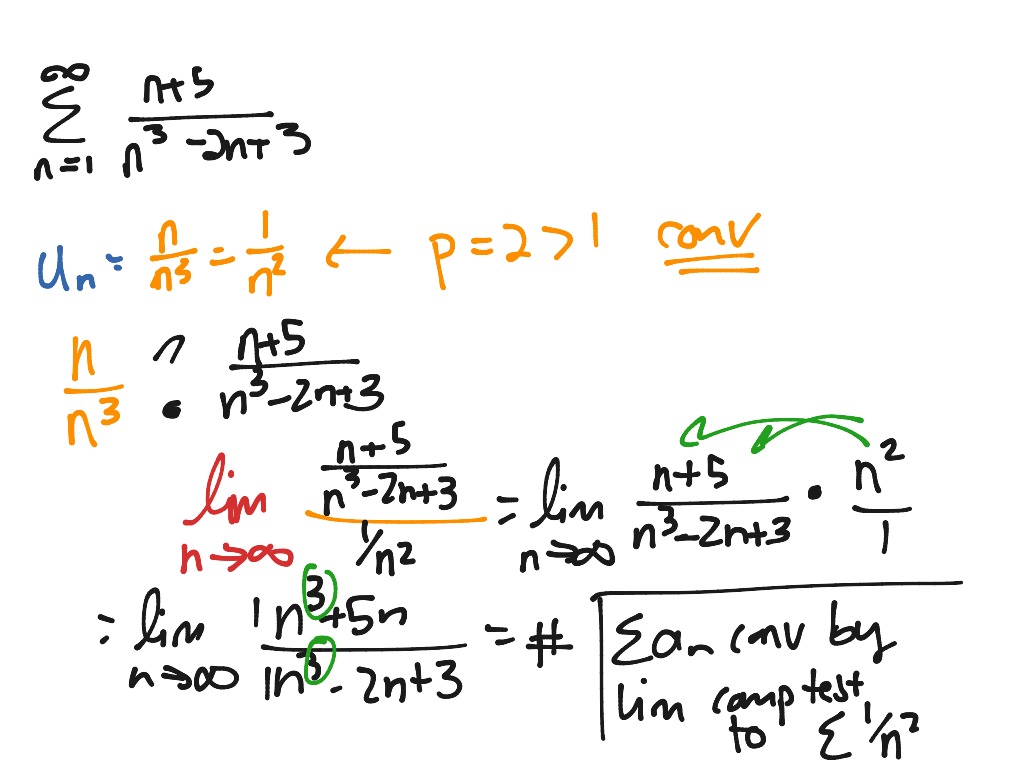 ∞
∑ n+5 / n³ -2n+3
n=1
Un = n/n³ = 1/n² ← p=2>1 conv
n/n³ n+5 / n³-2n+3
lim n→∞ (n+5 / n³-2n+3) / (1/n²) = lim n→∞ n+5 / n³-2n+3 • n²/1
= lim n→∞ 1n³+5n / 1n³-2n+3 = #
∑an conv by
lim comp test
to ∑ 1/n²